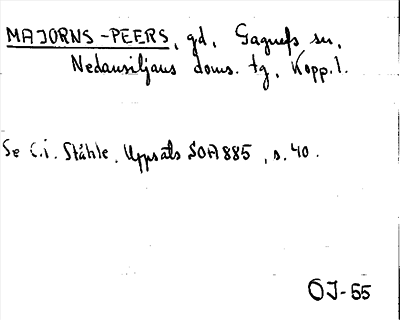 MAJORNS-PEERS, gd, Gagnefs sn,
Nedansiljans doms. tg, Kopp. l.
Se C.I. Ståhle, Uppsats SOA 885, s. 40.
OJ-55